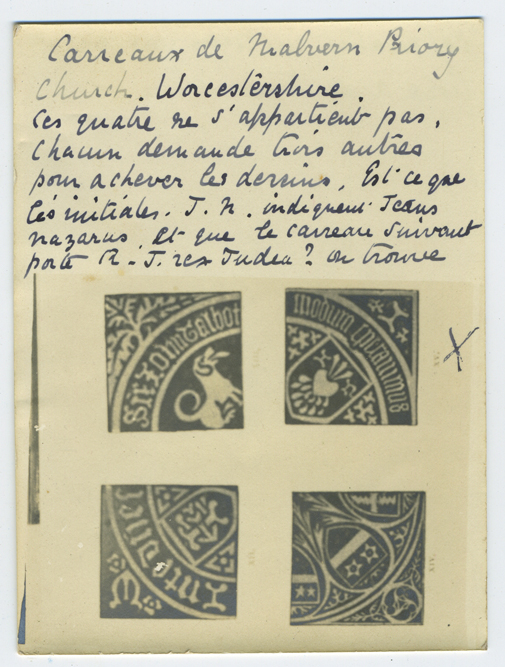 Carreaux de Malvern Priory
Church. Worcestershire.
Ces quatre ne s'appartient pas.
Chacun demande trois autres
pour achever les dessins. Est ce que
les initiales. J. N. indiquent Jesus
nazarus. Et que le carreau suivant
porte R. J. rex Judea? on trouve
Sir John Talbot
modum
X
XIV.